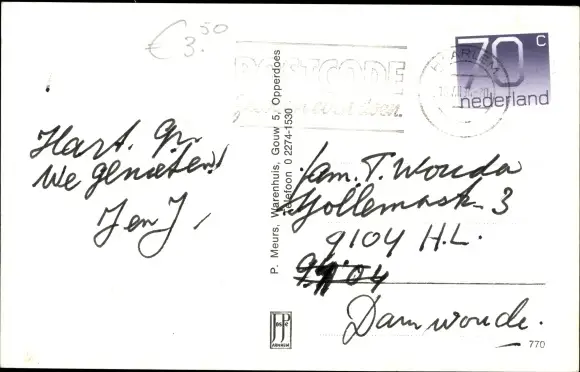 € 3.50
70 c
nederland
POSTCODE
HAARLEM
Hart. Gr.
We genieten!
J en J,
P. Meurs, Warenhuis, Gouw 5, Opperdoes
Telefoon 0 2274-1530
fam. T. Wouda
3
9104 H.L.
Damwoude.
JosPé
ARNHEM
770